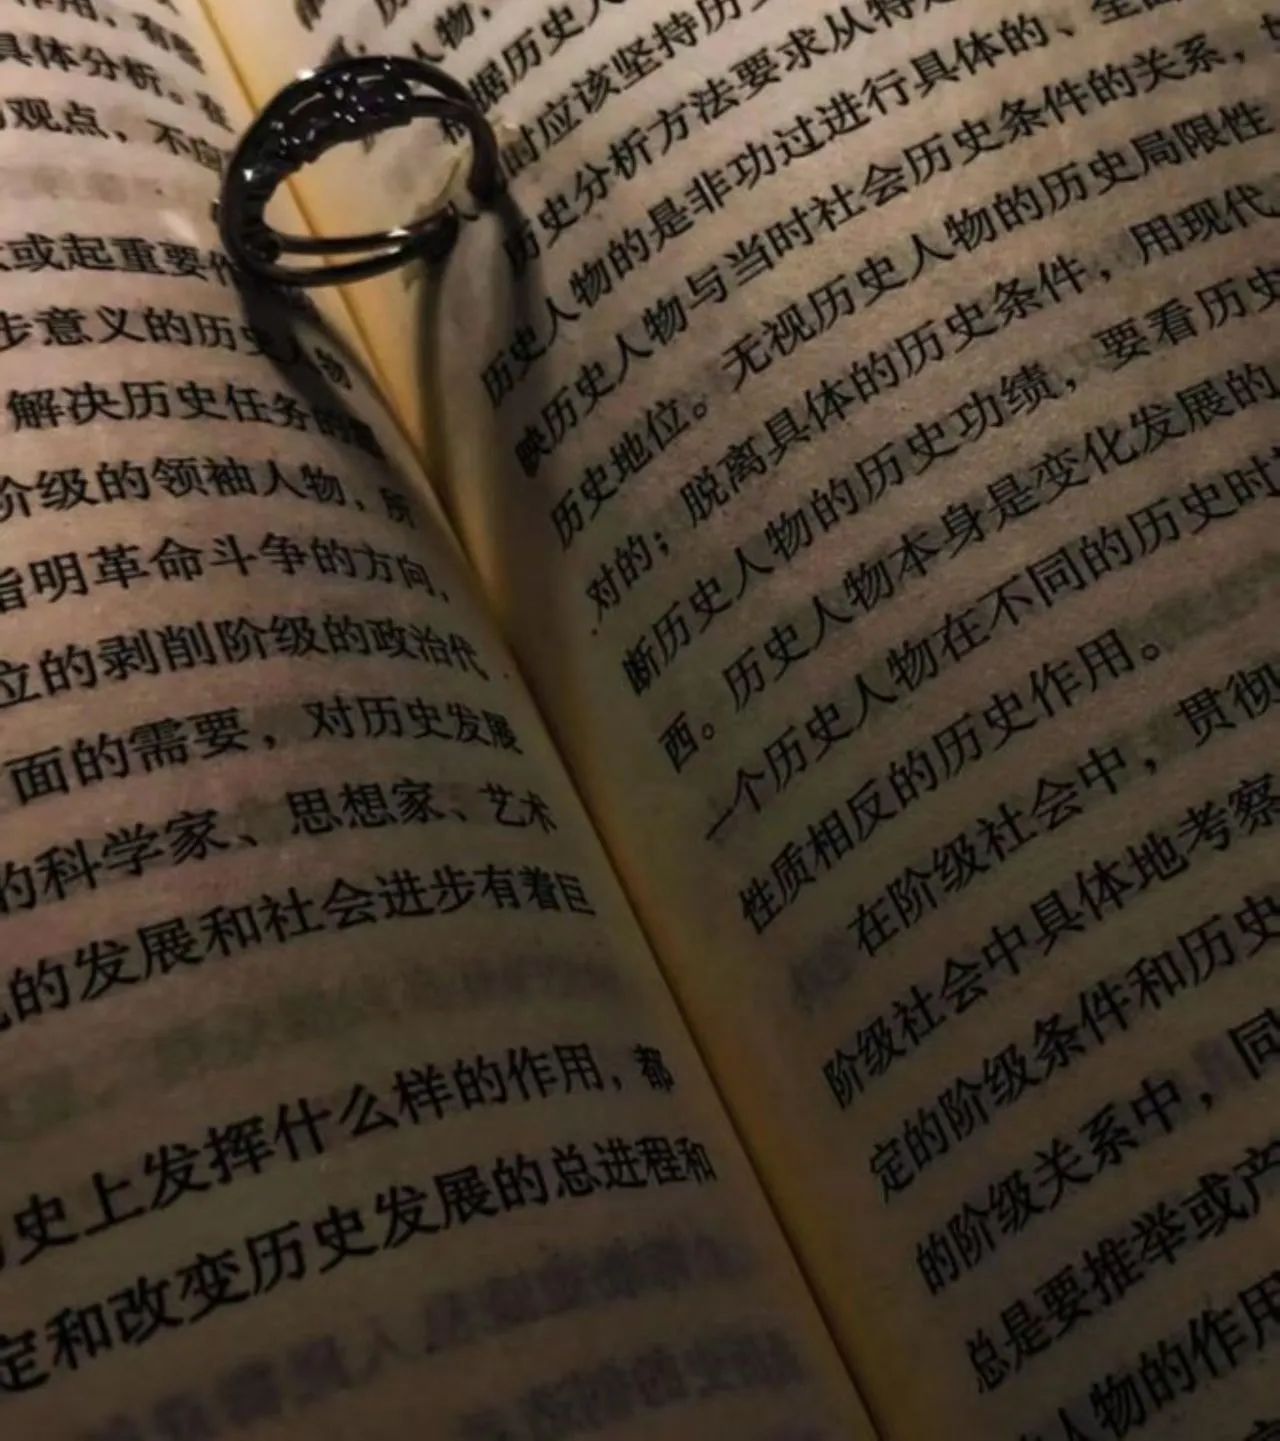 具体分析。在
观点，不应
或起重要作
步意义的历史人物
解决历史任务的
阶级的领袖人物，所
指明革命斗争的方向，
立的剥削阶级的政治代
面的需要，对历史发展
的科学家、思想家、艺术
的发展和社会进步有着巨
史上发挥什么样的作用，都
定和改变历史发展的总进程和
人物，
根据历史人
时应该坚持历史
历史分析方法要求从特定
历史人物的是非功过进行具体的、全面
映历史人物与当时社会历史条件的关系，
历史地位。无视历史人物的历史局限性
对的；脱离具体的历史条件，用现代
断历史人物的历史功绩，要看历史
西。历史人物本身是变化发展的
一个历史人物在不同的历史时
性质相反的历史作用。
在阶级社会中，贯彻
阶级社会中具体地考察
定的阶级条件和历史
的阶级关系中，同
总是要推举或产
人物的作用